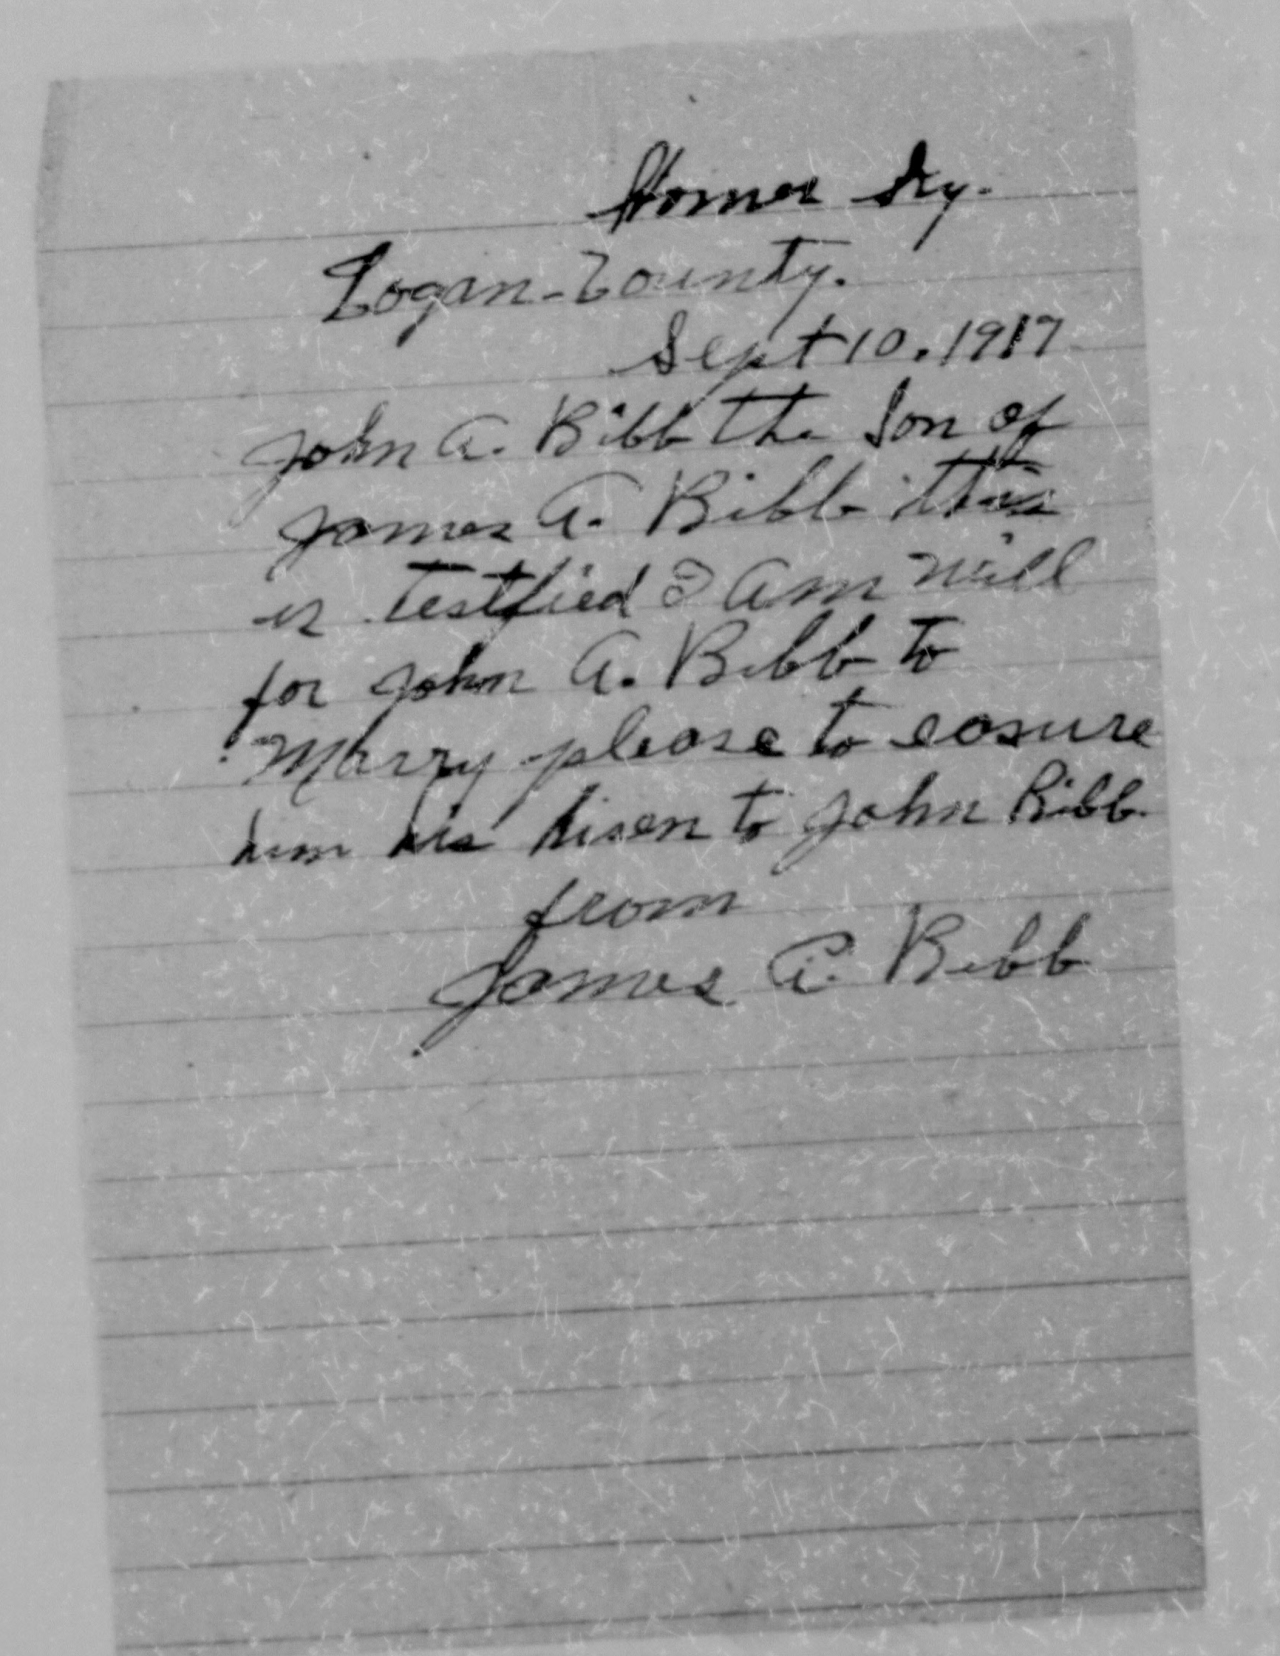 Homer Ky.
Logan-County.
Sept 10. 1917
John A. Bibb the Son of
James A. Bibb this
is testfied I am will
for John A. Bibb to
Marry please to easure
him his lisen to John Bibb
from
James A. Bibb